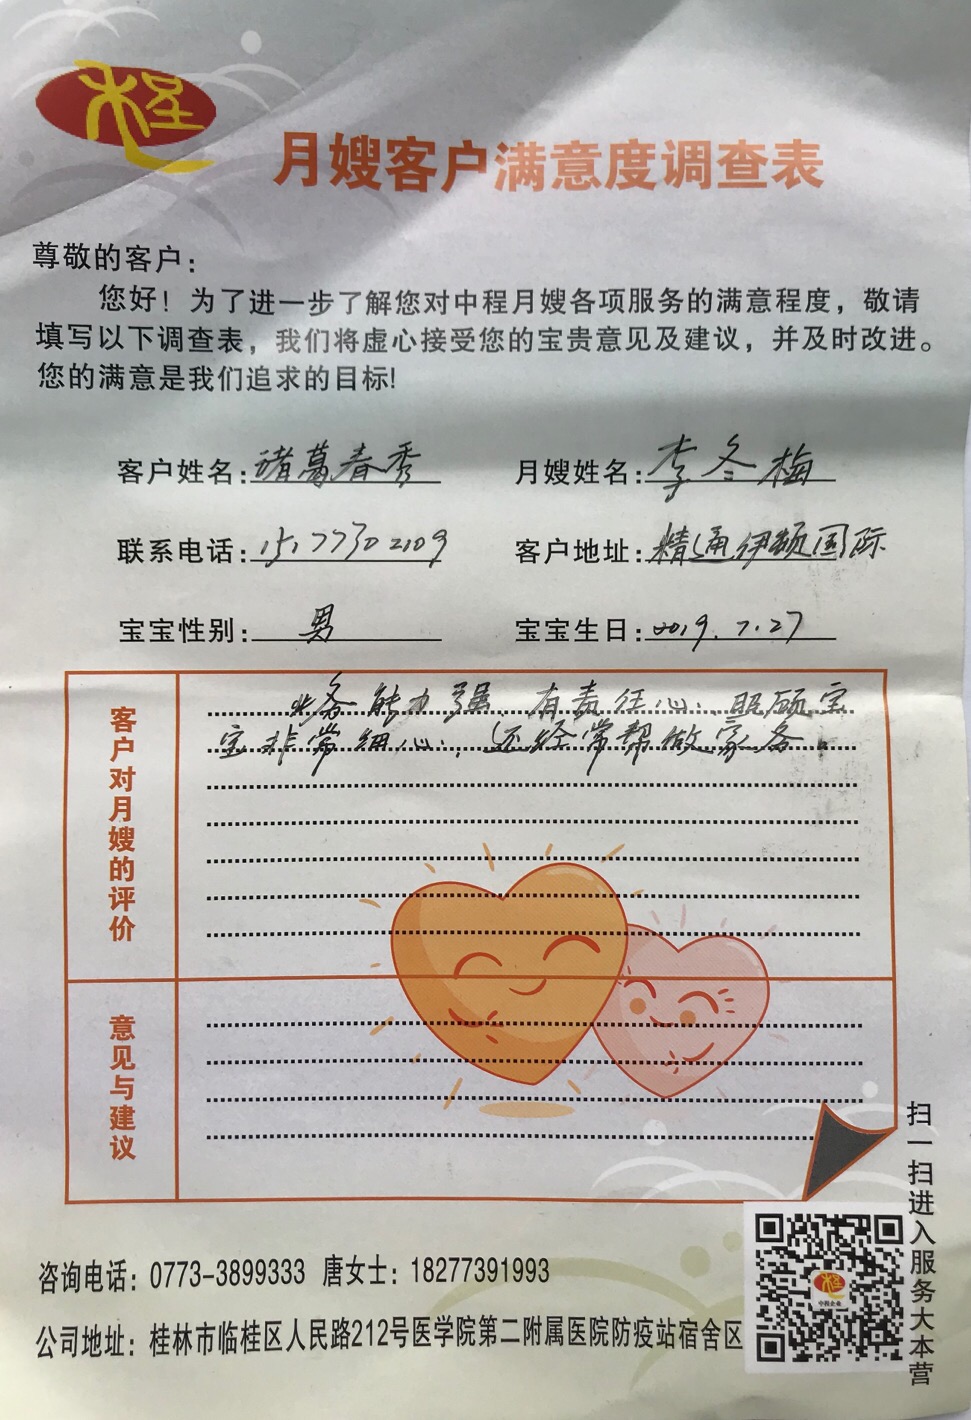 月嫂客户满意度调查表
尊敬的客户：
您好！为了进一步了解您对中程月嫂各项服务的满意程度，敬请
填写以下调查表，我们将虚心接受您的宝贵意见及建议，并及时改进。
您的满意是我们追求的目标!
客户姓名：诸葛春秀 月嫂姓名：李冬梅
联系电话：15177302109 客户地址：精通伊顿国际
宝宝性别：男 宝宝生日：2019.7.27
客户对月嫂的评价
业务能力强、有责任心、照顾宝
宝非常细心，还经常帮做家务。
意见与建议
扫一扫进入服务大本营
咨询电话：0773-3899333 唐女士：18277391993
公司地址：桂林市临桂区人民路212号医学院第二附属医院防疫站宿舍区